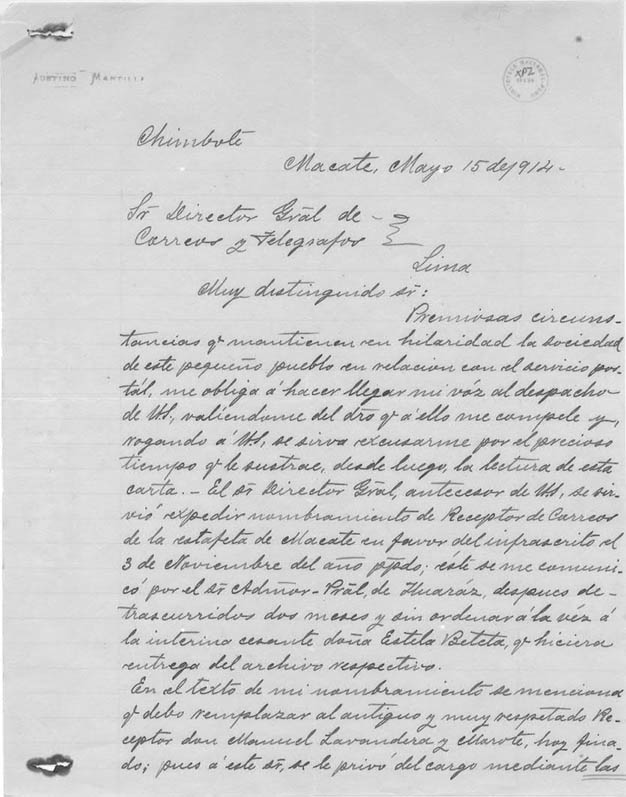 AGUSTINO MANTILLA
Chimbote
Macate, Mayo 15 de 1914-
Sr Director Gral de -
Correos y Telegrafos
Lima
Muy distinguido sr:
Premiosas circuns-
tancias q mantienen en hilaridad la sociedad
de este pequeño pueblo en relacion con el servicio pos-
tál, me obliga á hacer llegar mi vóz al despacho
de US, valiendome del dro q á ello me compele y,
rogando á US, se sirva excusarme por el precioso
tiempo q le sustrae, desde luego, la lectura de esta
carta. - El Sr Director Gral, antecesor de US, se sir-
vió expedir nombramiento de Receptor de Correos
de la estafeta de Macate en favor del infrascrito el
3 de Noviembre del año ppdo; éste se me comuni-
có por el Sr Admor - Pral, de Huaráz, despues de -
trascurridos dos meses y sin ordenar á la véz á
la interina cesante doña Estela Beteta, q hiciera
entrega del archivo respectivo.
En el texto de mi nombramiento se menciona
q debo remplazar al antiguo y muy respetado Re-
ceptor don Manuel Lavandera y Marote, hoy fina-
do; pues á este Sr, se le privo del cargo mediante las